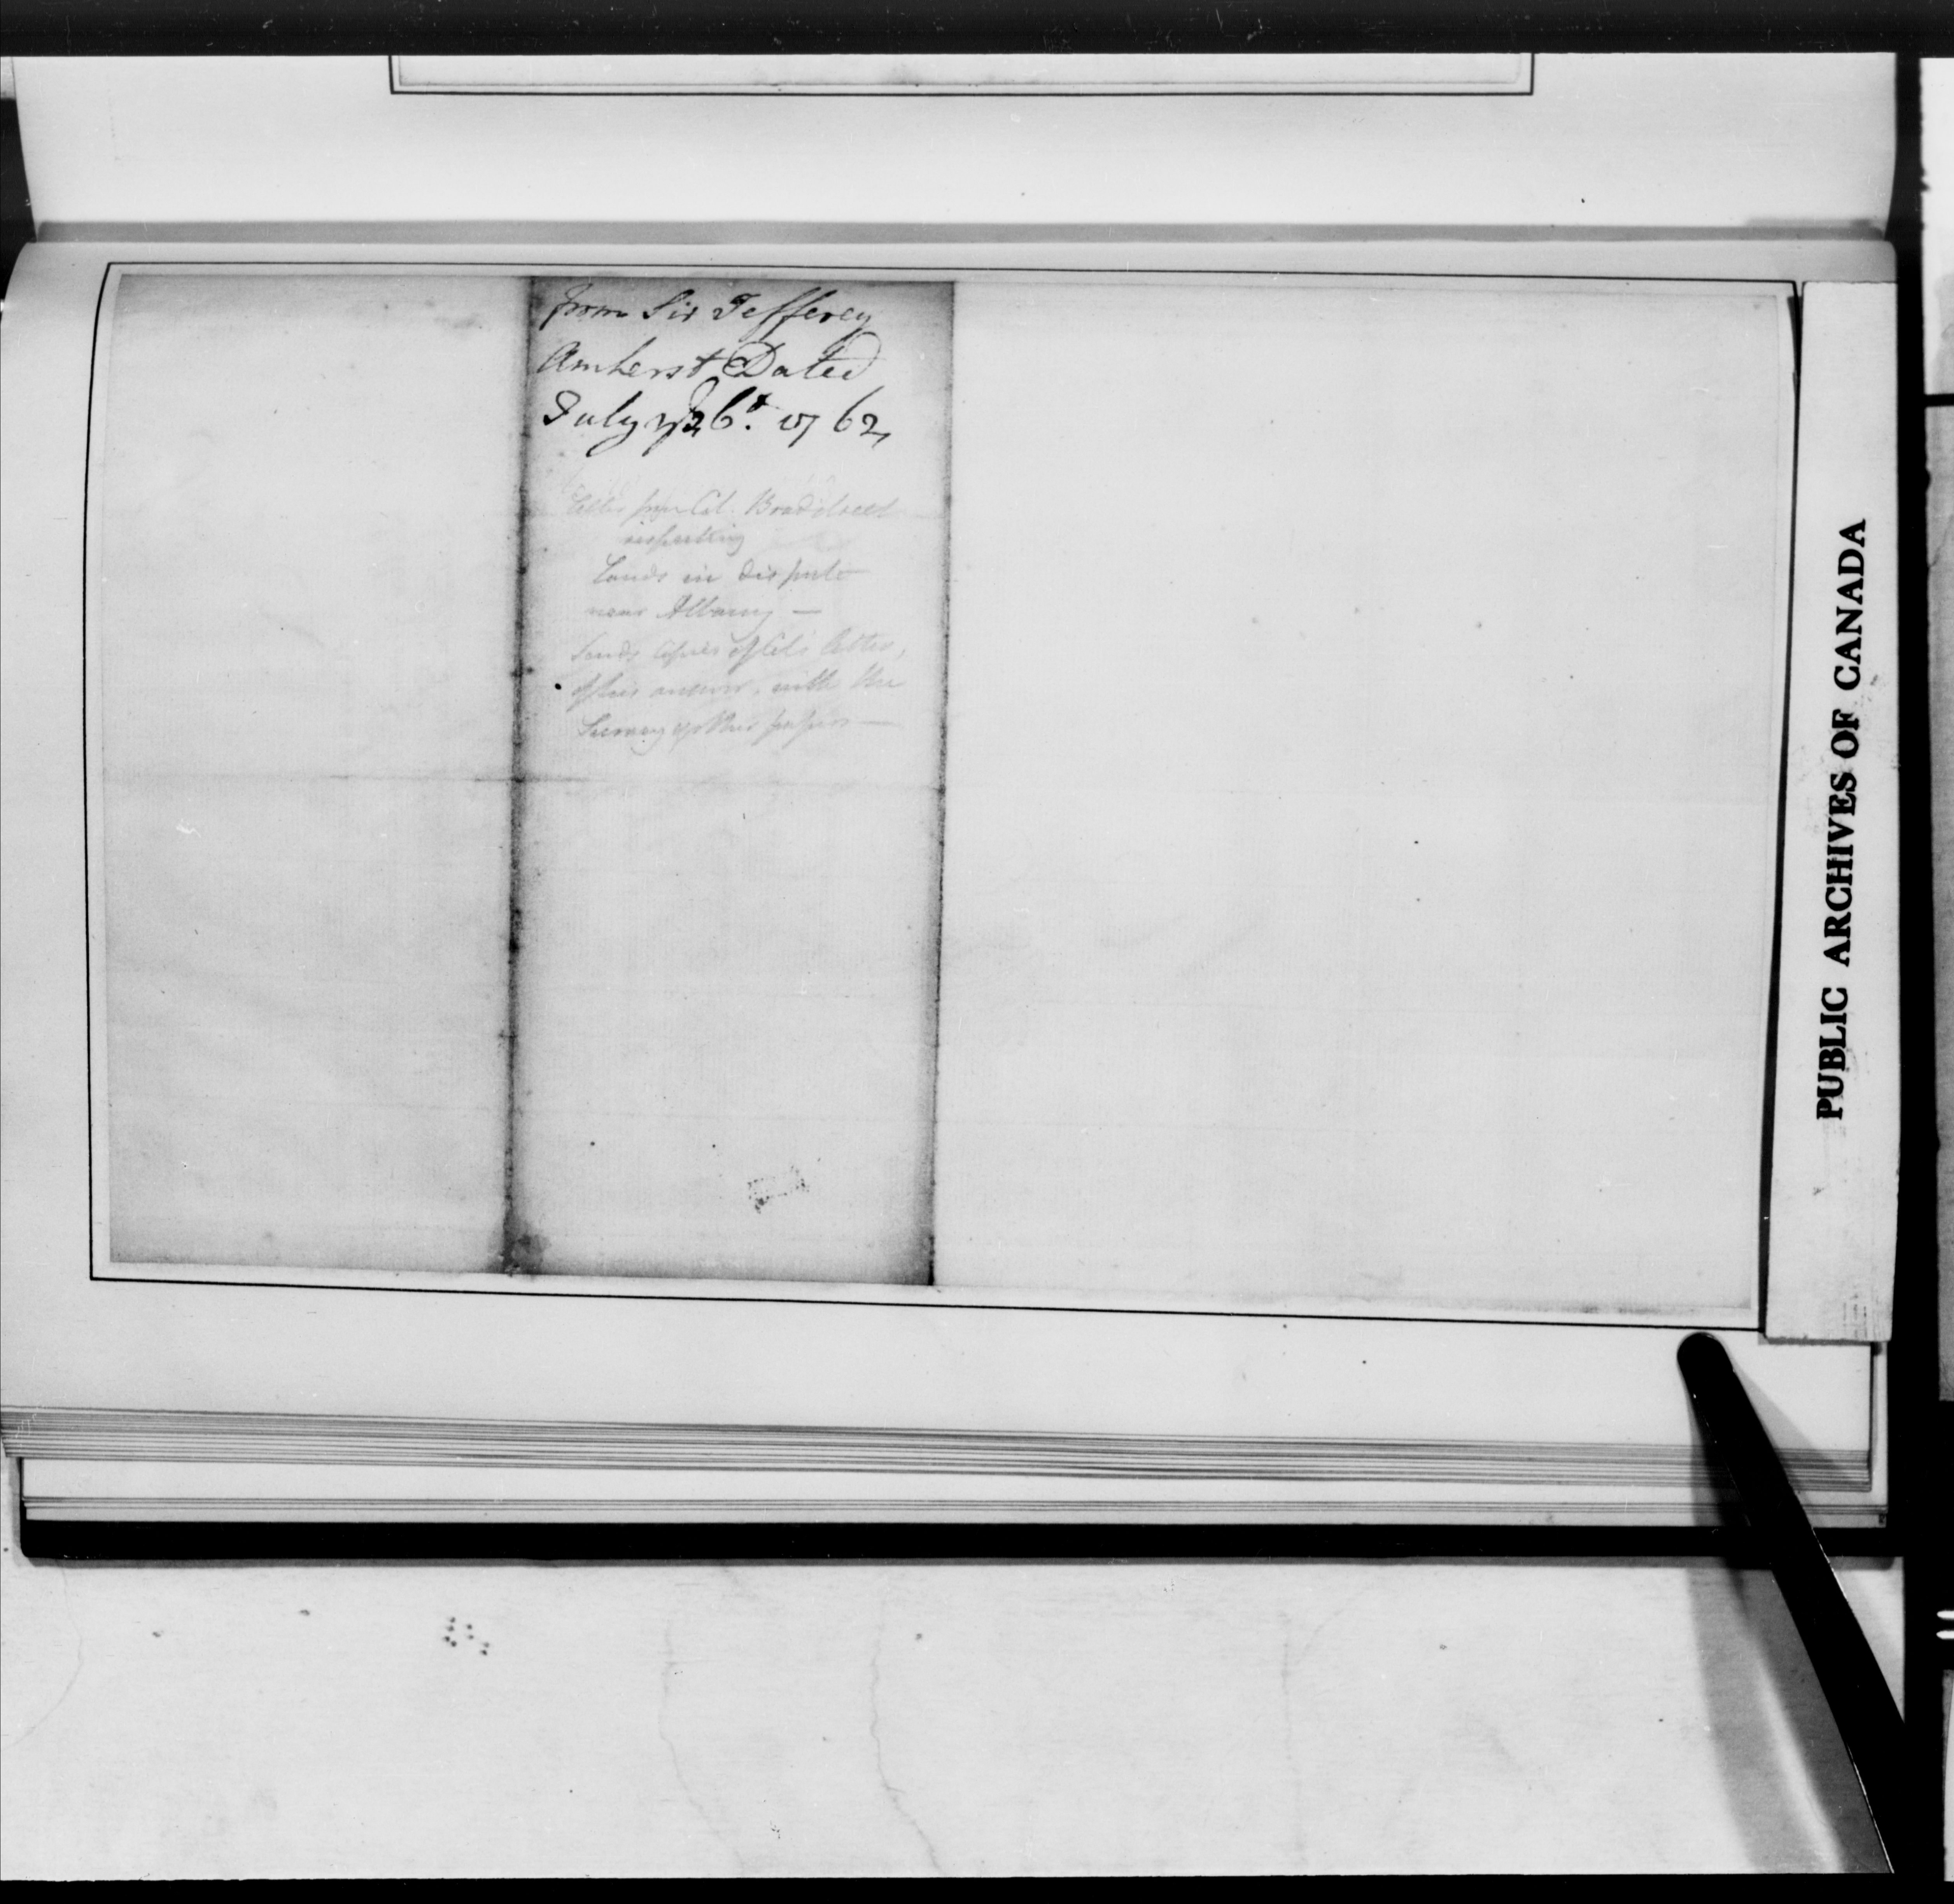 from Sir Jefferey
Amherst Dated
July 26t. 1762,
Letter from Col. Bradstreet
respecting
Lands in dispute
near Albany —
Sends Copies of Col's letter,
of his answer, with the
Survey & other papers —
PUBLIC ARCHIVES OF CANADA